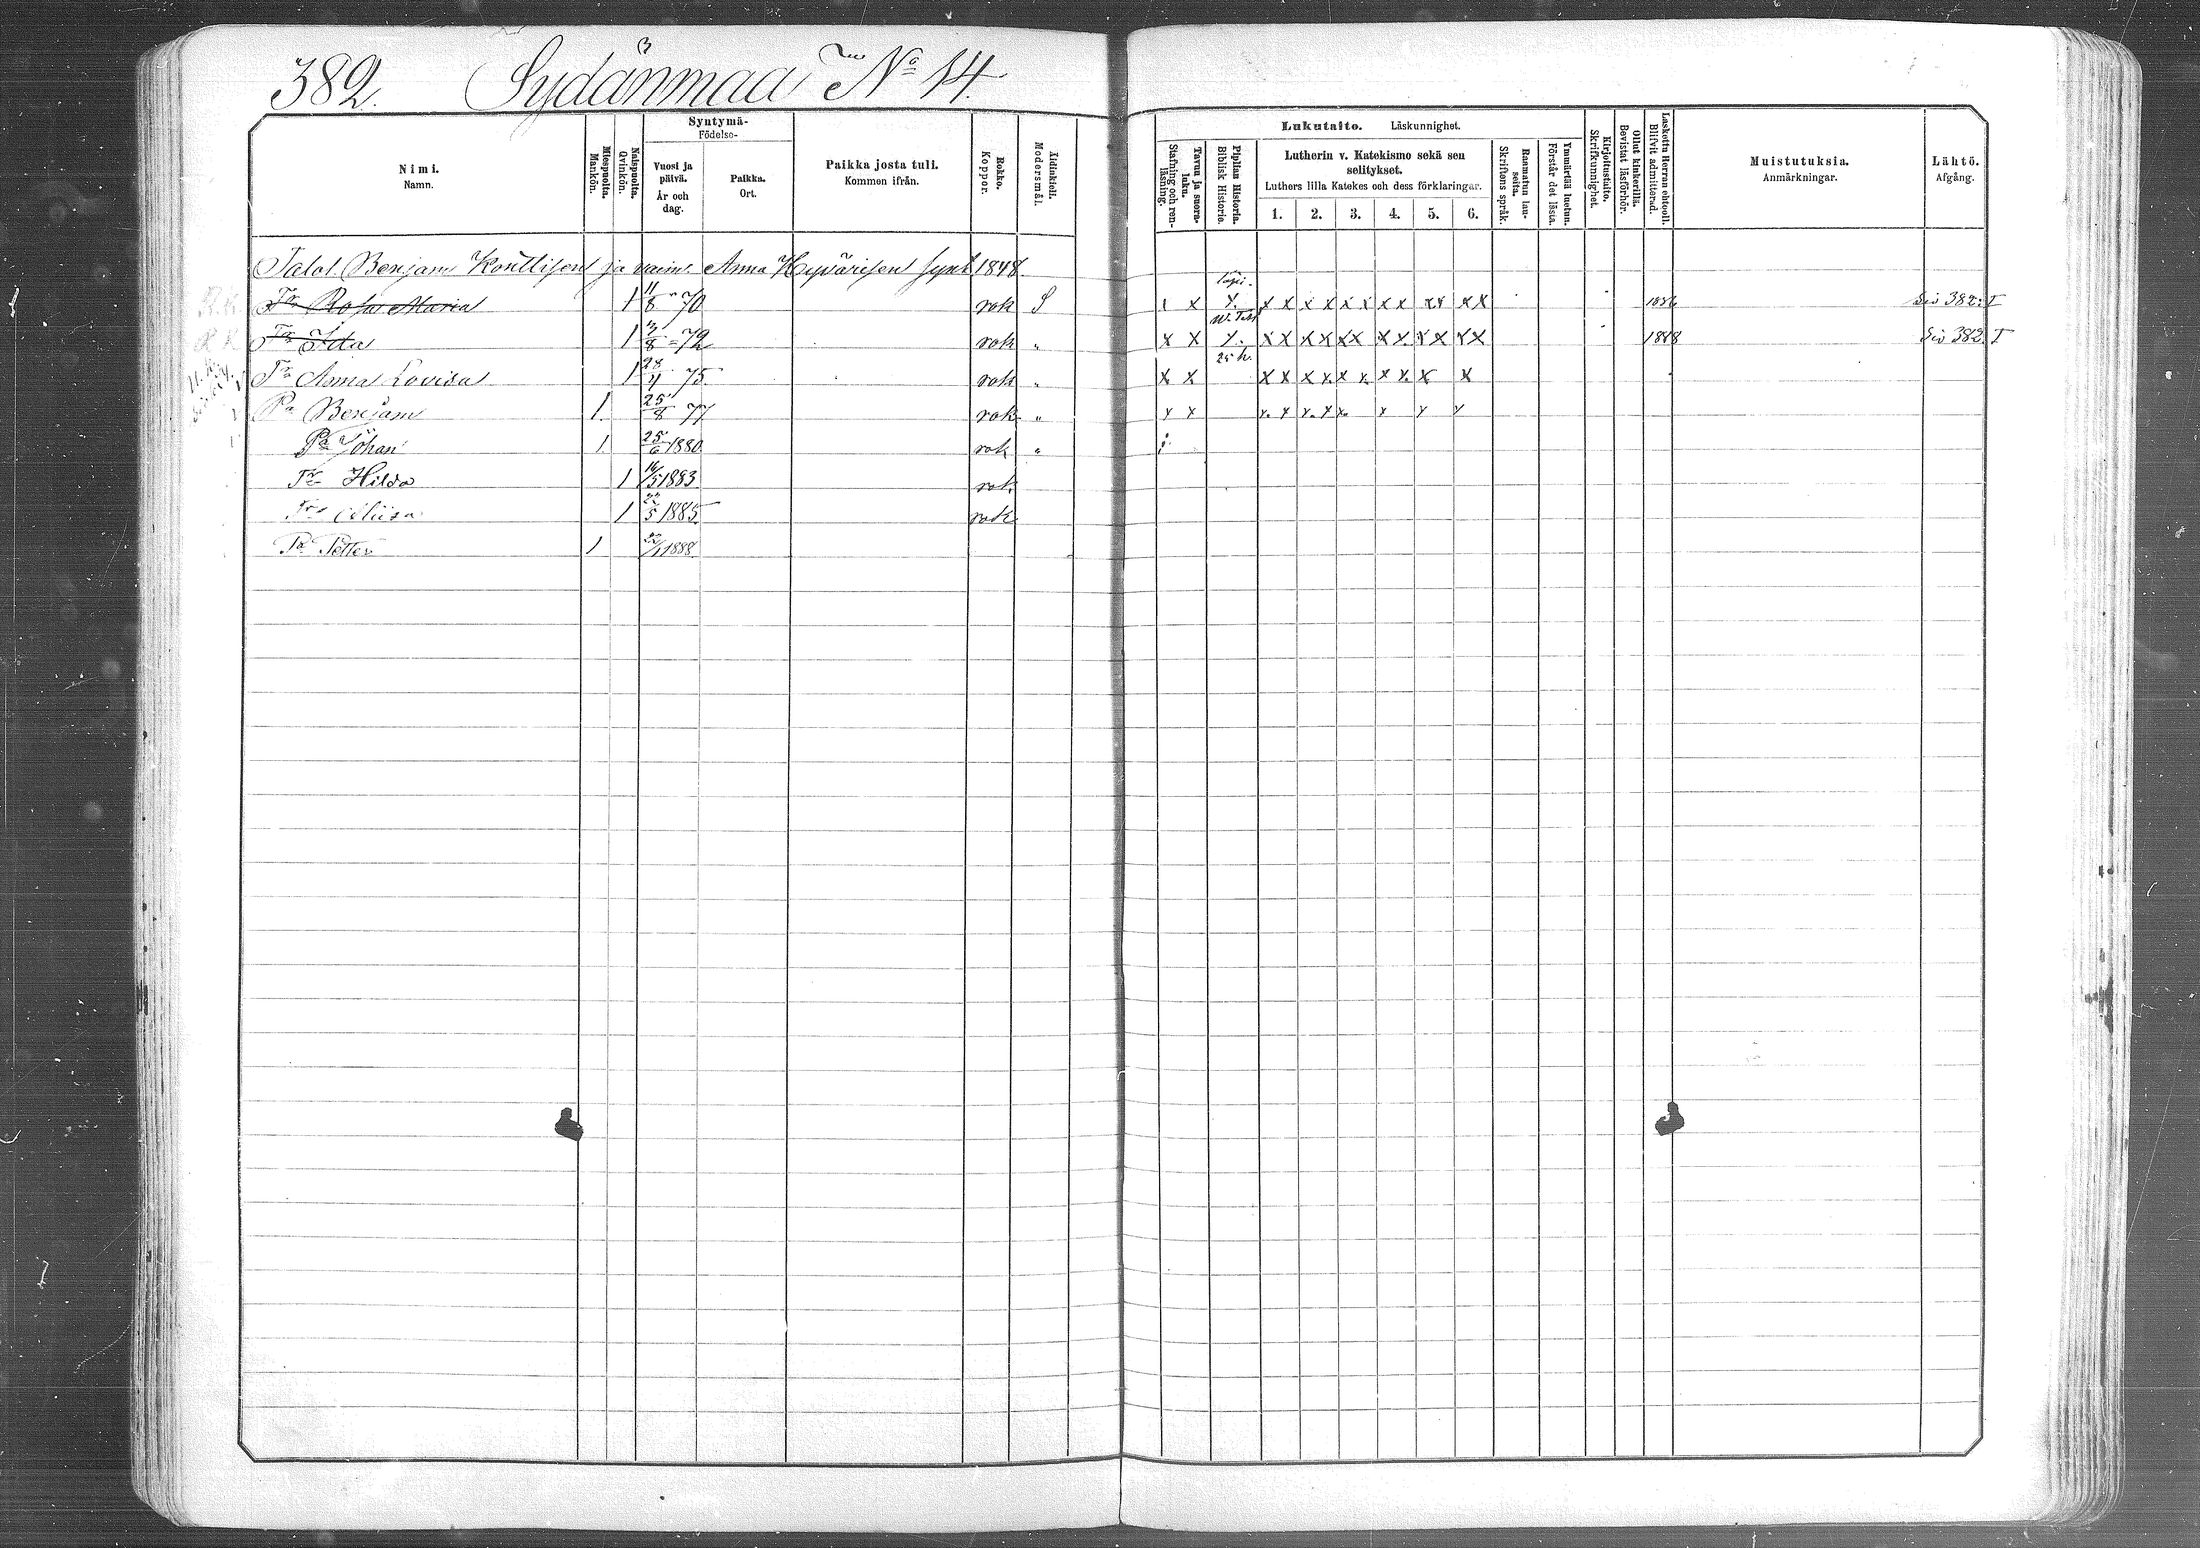 382. Sydänmaa No 14.
Syntymä-
Födelse-
Nimi.
Namn.
Miespuolta.
Mankön.
Naispuolta.
Qvinkön.
Vuosi ja
päivä.
År och
dag.
Paikka.
Ort.
Paikka josta tuli.
Kommen ifrån.
Rokko.
Koppor.
Äidinkieli.
Modersmål.
Talol. Benjam Konttisen ja vaim. Anna Hyvärisen synt 1848.
Tr Rosa Maria 1 11/8 70 rok S
Tr Ida 1 /8 72 rok "
Tr Anna Lovisa 1 28/4 75 rok "
Pa Benjam 1. 25/8 77 rok "
Pa Johan 1. 25/6 1880 rok "
Tr Hilda 1 16/5 1883 rok
Tr 1 22/5 1885 rok
Pa Petter 1 1888.
Lukutaito. Läskunnighet.
Stafning och ren-
läsning.
Tavuu ja suora-
luku.
Piplian Historia.
Biblisk Historie.
Lutherin v. Katekismo sekä sen
selitykset.
Luthers lilla Katekes och dess förklaringar.
1. 2. 3. 4. 5. 6.
Raamatun lau-
seita.
Skriftens språk.
Ymmärtää luetun.
Förstår det lästa.
Kirjoitustaito.
Skrifkunnighet.
Ollut kinkerillä.
Bevistat läsförhör.
Laskettu Herran ehtooll.
Blifvit admitterad.
Muistutuksia.
Anmärkningar.
Lähtö.
Afgång.
x x x x x x x x x x x x x x 1886 Siv 382. I
x x x x x x x x x x x x x x 1888 Siv 382. I
25 k.
x x x x x x x x x x x x
x x x x x x x x x x